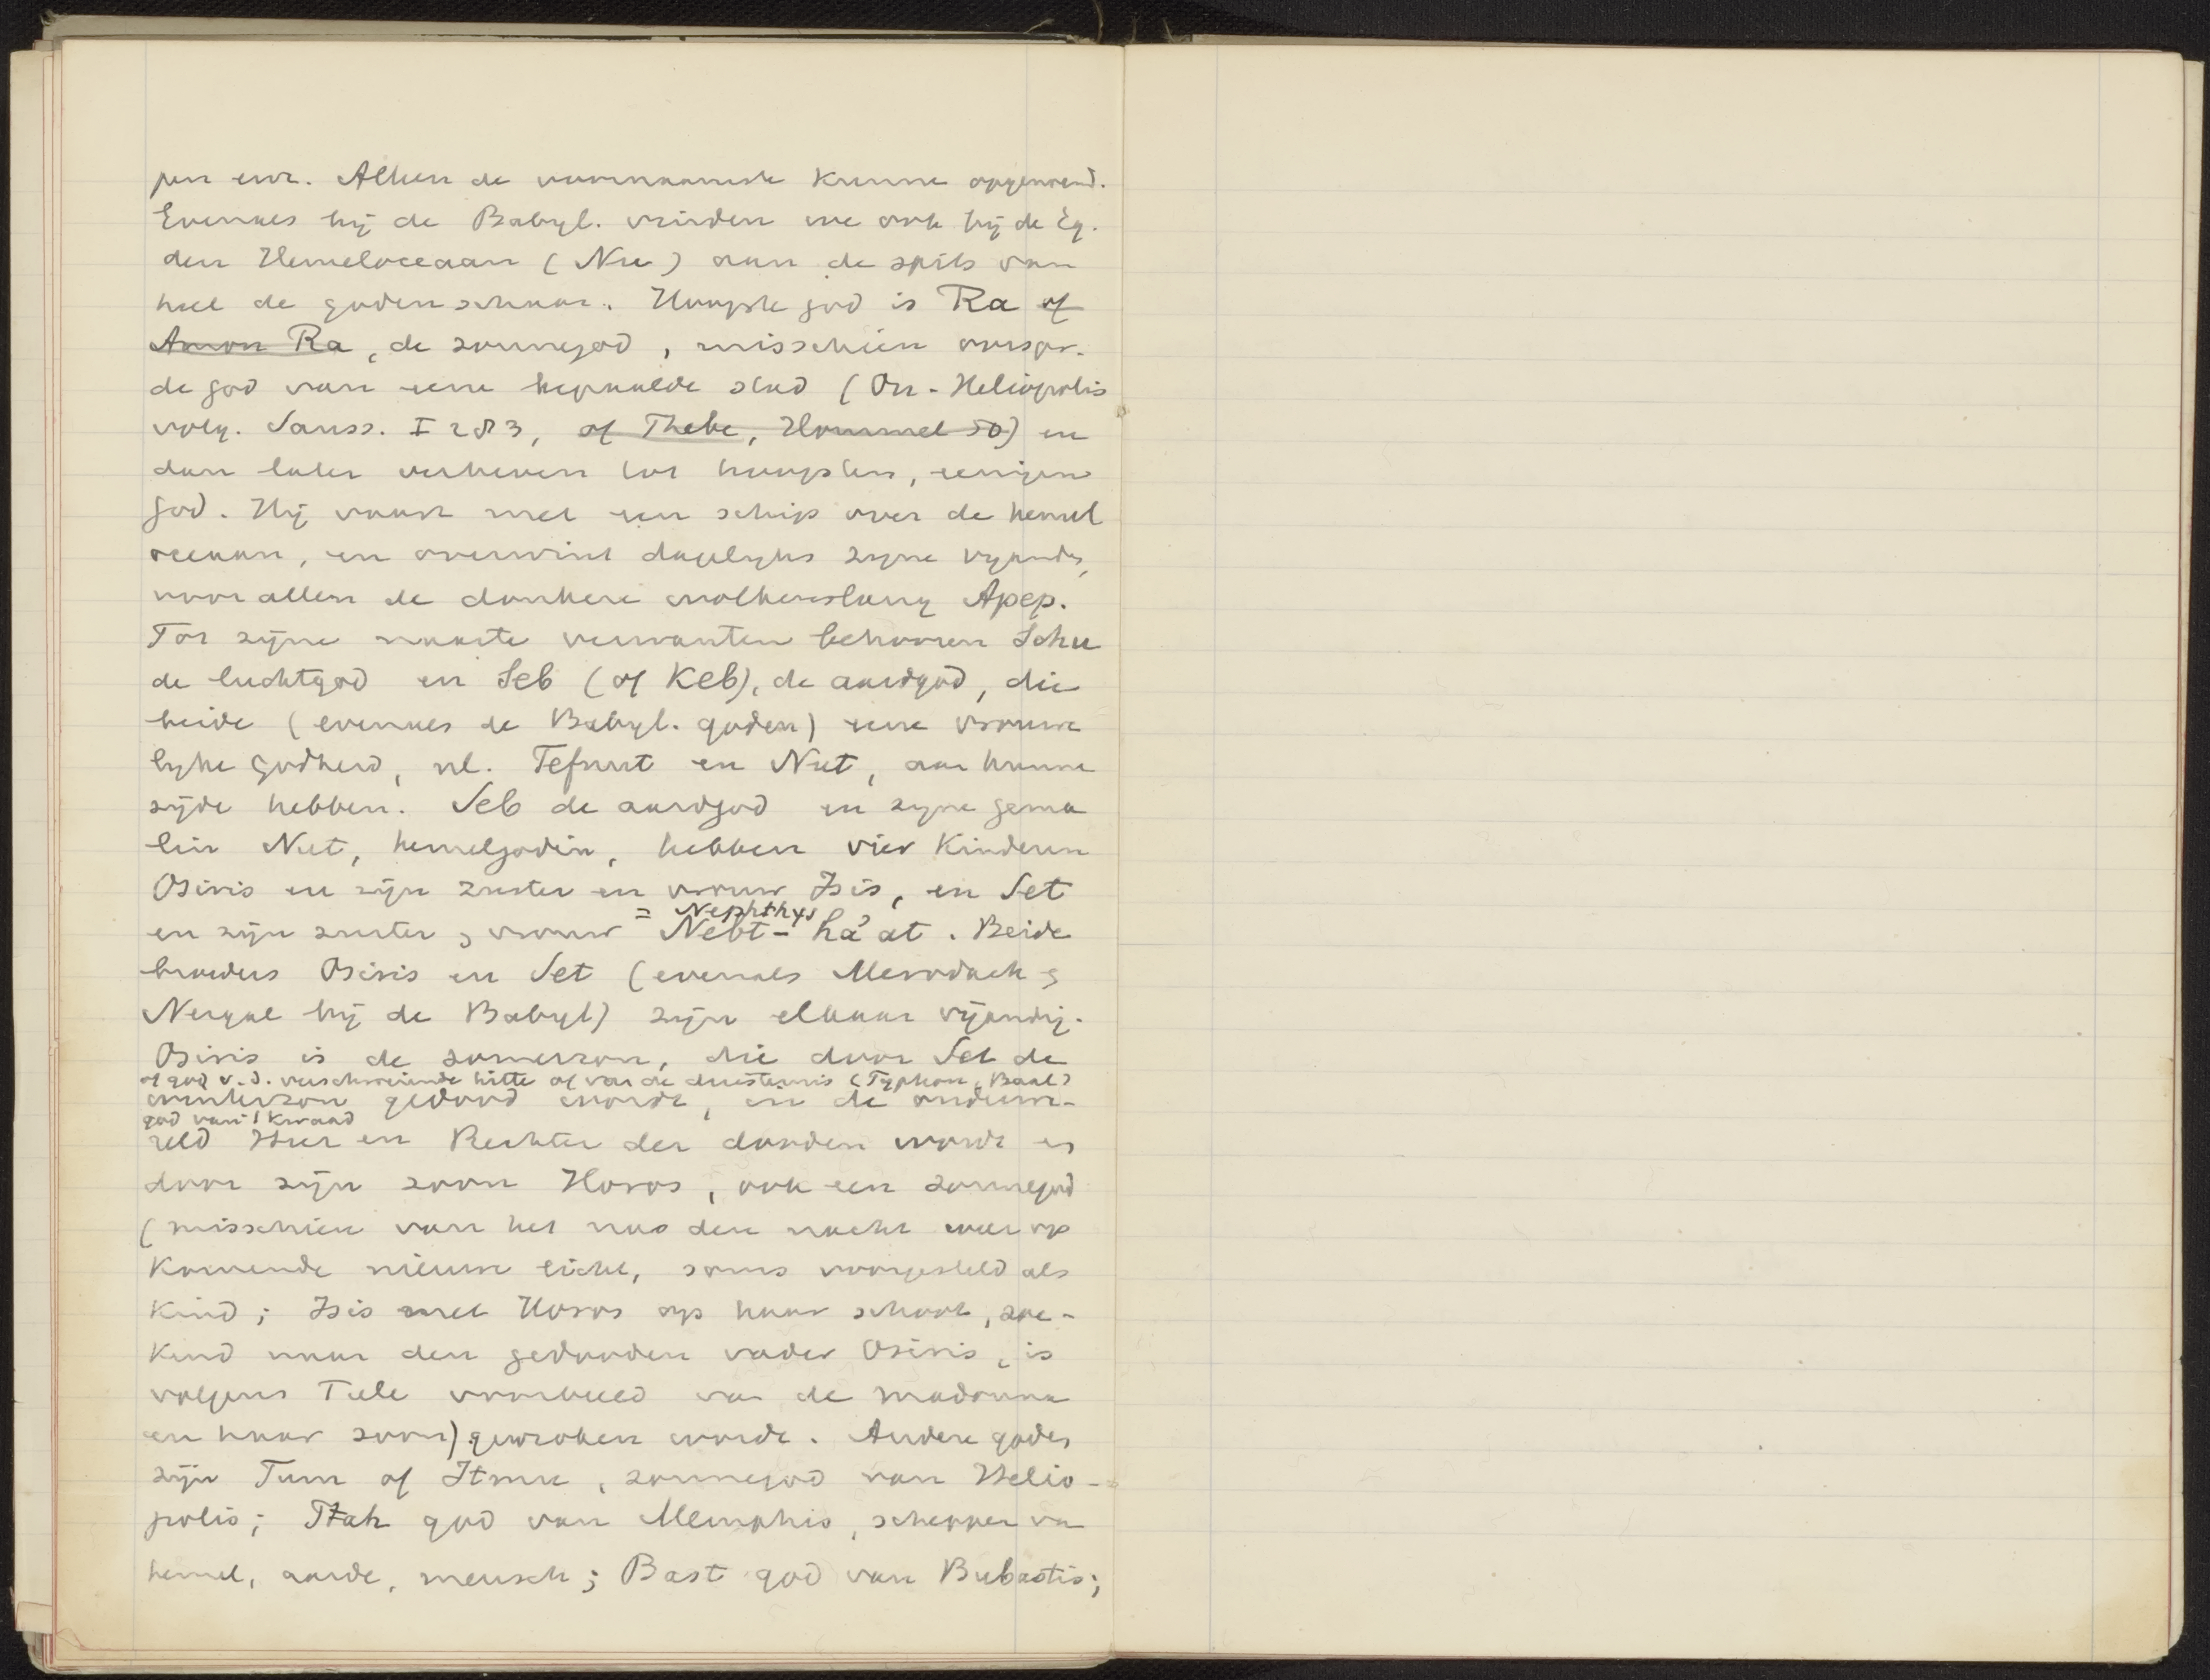 pen enz. Alleen de voornaamste kunne opgenoemd.
Evenals bij de Babyl. vinden we ook bij de Eg.
den Hemeloceaan (Nu) aan de spits van
heel de godenschaar. Hoogste god is Ra of
Amon Ra, de zonnegod, misschien oorspr.
de god van eene bepaalde stad (On-Heliopolis
volg. Sauss. I 283, of Thebe, Hommel 50) en
dan later verheven tot hoogsten, eenigen
god. Hij vaart met een schip over de hemel
oceaan, en overwint dagelyks zyne vyande,
voor allen de donkere wolkenslang Apep.
Tot zijne naaste verwanten behooren Schu
de luchtgod en Seb (of Keb), de aardgod, die
beide (evenals de Babyl. goden) eene vrouwe
lyke godheid, nl. Tefnut en Nut, aan hunne
zijde hebben. Seb de aardgod en zyne gema
lin Nut, hemelgodin, hebben vier Kinderen
Osiris en zijn zuster en vrouw Isis, en Set
= Nephthys
en zijn zuster & vrouw Nebt-ha'at. Beide
broeders Osiris en Set (evenals Merodach &
Nergal bij de Babyl) zijn elkaar vijandig.
Osiris is de zomerzon, die door Set de
of god v.d. verschroeiende hitte of van de duisternis (Typhon, Baal)
winterzon gedood wordt, in de onderwe-
god van 't kwaad
reld Heer en Rechter der dooden wordt en
door zijn zoon Horos, ook een zonnegod
(misschien van het na den nacht weer op
komende nieuwe licht, soms voorgesteld als
kind; Isis met Horos op haar schoot, zoe-
kend naar den gedooden vader Osiris, is
volgens Tiele voorbeeld van de madonna
en haar zoon) gewroken wordt. Andere goden
zijn Tum of Itmu, zonnegod van Helio-
polis; Ptah god van Memphis, schepper van
hemel, aarde, mensch; Bast god van Bubastis;